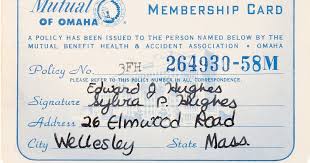 Mutual OF OMAHA MEMBERSHIP CARD
A POLICY HAS BEEN ISSUED TO THE PERSON NAMED BELOW BY THE
MUTUAL BENEFIT HEALTH & ACCIDENT ASSOCIATION • OMAHA
Policy No. 3FH 264930-58M
PLEASE REFER TO THIS POLICY NUMBER IN ALL CORRESPONDENCE.
Edward J Hughes
Signature Sylvia P. Hughes
Address 26 Elmwood Road
City Wellesley State Mass.